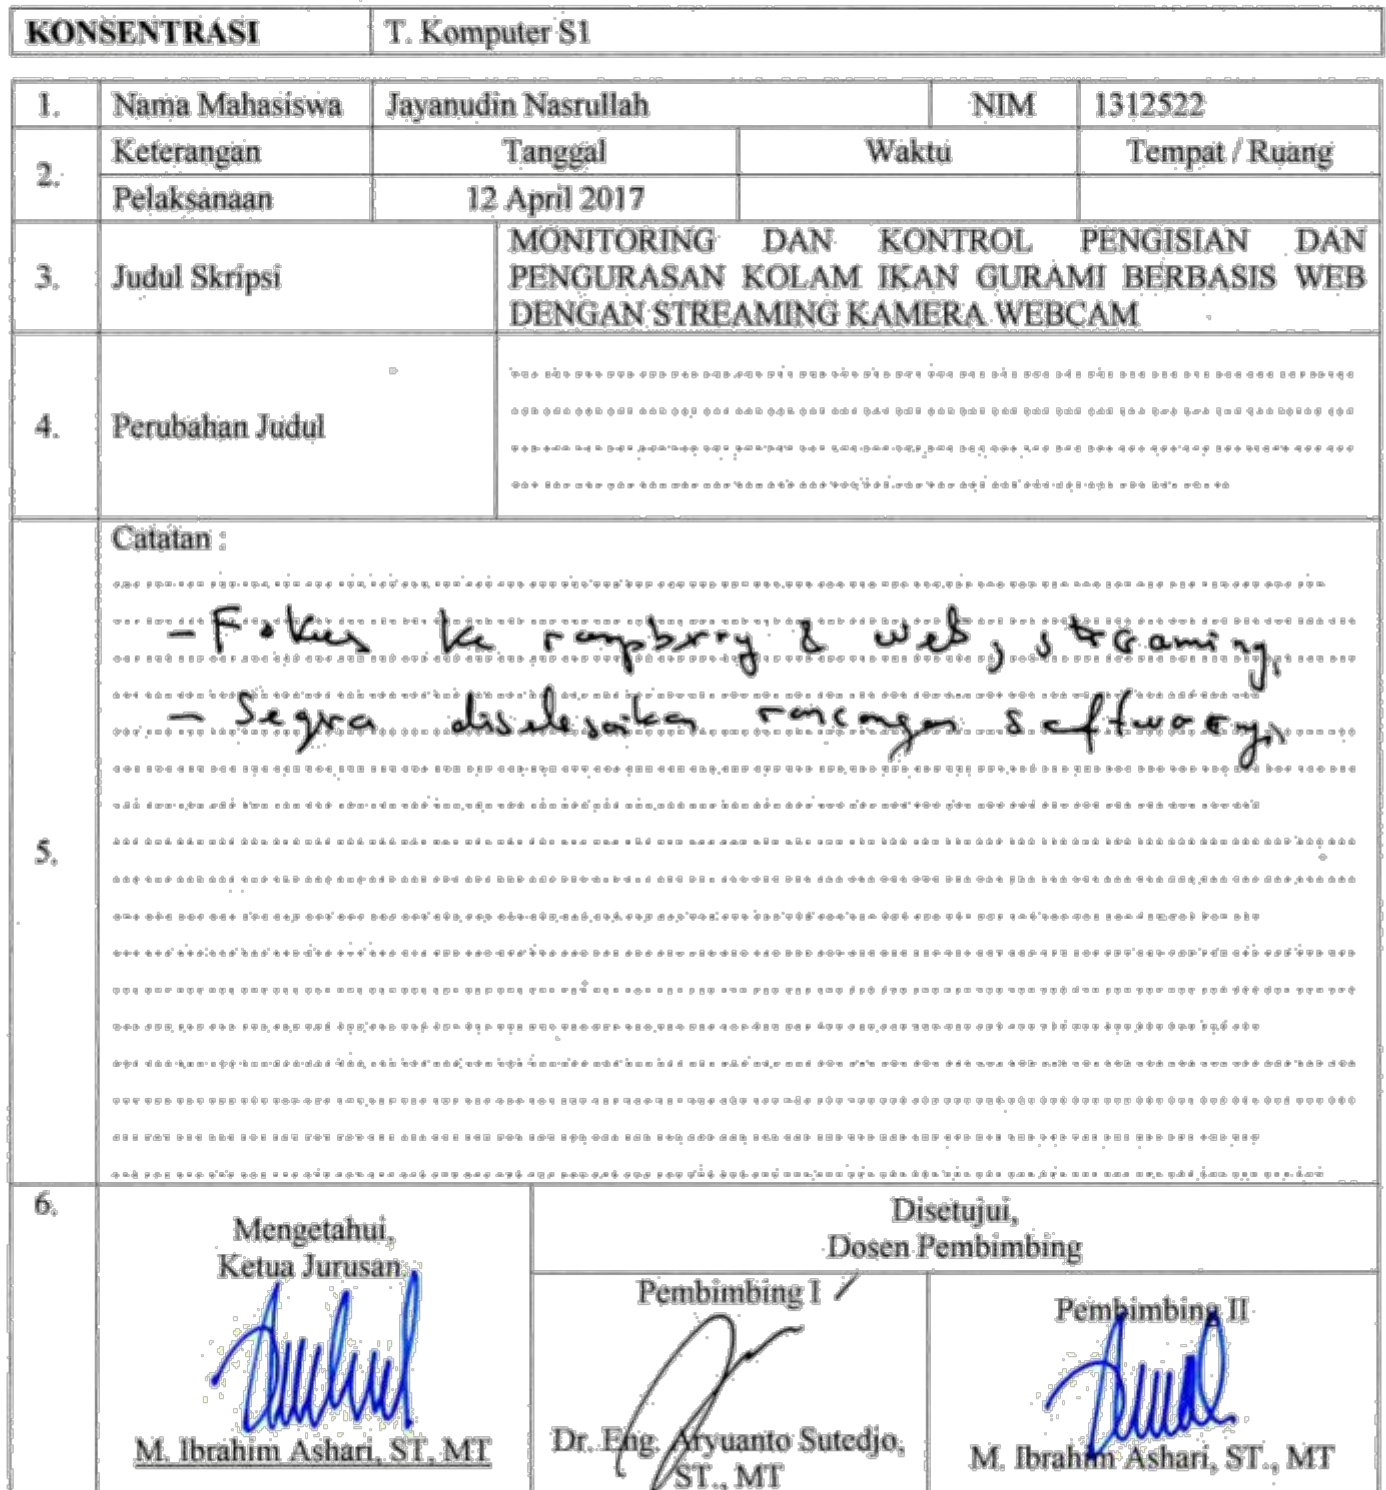 KONSENTRASI T. Komputer S1
1. Nama Mahasiswa Jayanudin Nasrullah NIM 1312522
2. Keterangan Tanggal Waktu Tempat / Ruang
Pelaksanaan 12 April 2017
3. Judul Skripsi
MONITORING DAN KONTROL PENGISIAN DAN
PENGURASAN KOLAM IKAN GURAMI BERBASIS WEB
DENGAN STREAMING KAMERA WEBCAM
4. Perubahan Judul
5. Catatan :
- Fokus ke raspbrry & web, streaming,
- Segra diselesaikan rancangan
6.
Mengetahui,
Ketua Jurusan
M. Ibrahim Ashari, ST, MT
Disetujui,
Dosen Pembimbing
Pembimbing I
Dr. Eng. Aryuanto Sutedjo,
ST., MT
Pembimbing II
M. Ibrahim Ashari, ST., MT